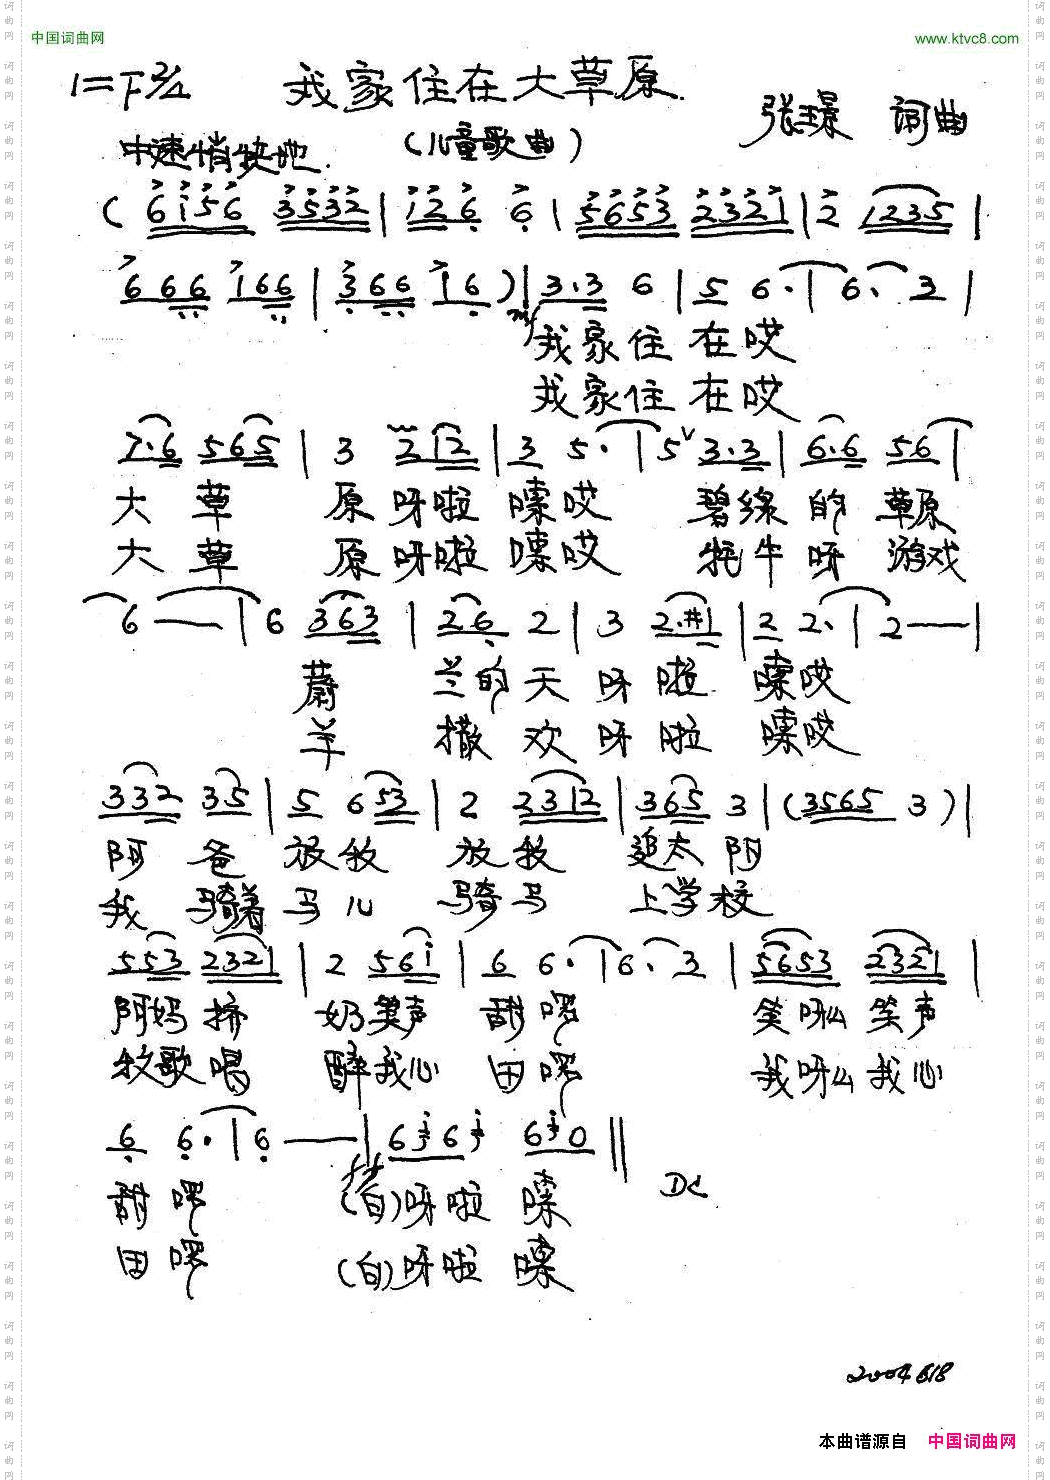 中国词曲网 www.ktvc8.com
1=F 2/4 我家住在大草原
张璟 词曲
中速稍快地 (儿童歌曲)
( 6 i 5 6 3 5 3 2 | 1 2 6 6 | 5 6 5 3 2 3 2 1 | 2 1 2 3 5 |
6 6 6 1 6 6 | 3 6 6 1 6 ) | 3 . 3 6 | 5 6 . | 6 . 3 |
mf
我家住在哎
我家住在哎
7 . 6 5 6 5 | 3 2 1 2 | 3 5 . | 5 ∨ 3 . 3 | 6 . 6 5 6 |
大草原呀啦嗦哎 碧绿的草原
大草原呀啦嗦哎 牦牛呀游戏
6 — | 6 3 6 3 | 2 6 2 | 3 2 . #1 | 2 2 . | 2 — |
蔚兰的天呀啦嗦哎
羊撒欢呀啦嗦哎
3 3 2 3 5 | 5 6 5 3 | 2 2 3 1 2 | 3 6 5 3 | ( 3 5 6 5 3 ) |
阿爸放牧放牧追太阳
我骑着马儿骑马上学校
5 5 3 2 3 2 1 | 2 5 6 i | 6 6 . | 6 . 3 | 5 6 5 3 2 3 2 1 |
阿妈挤奶笑声甜啰 笑呀么笑声
牧歌唱醉我心田啰 我呀么我心
6 6 . | 6 — | 6 i 6 i 6 i 0 ‖
甜啰 (白)呀啦嗦 DC
田啰 (白)呀啦嗦
本曲谱源自 中国词曲网